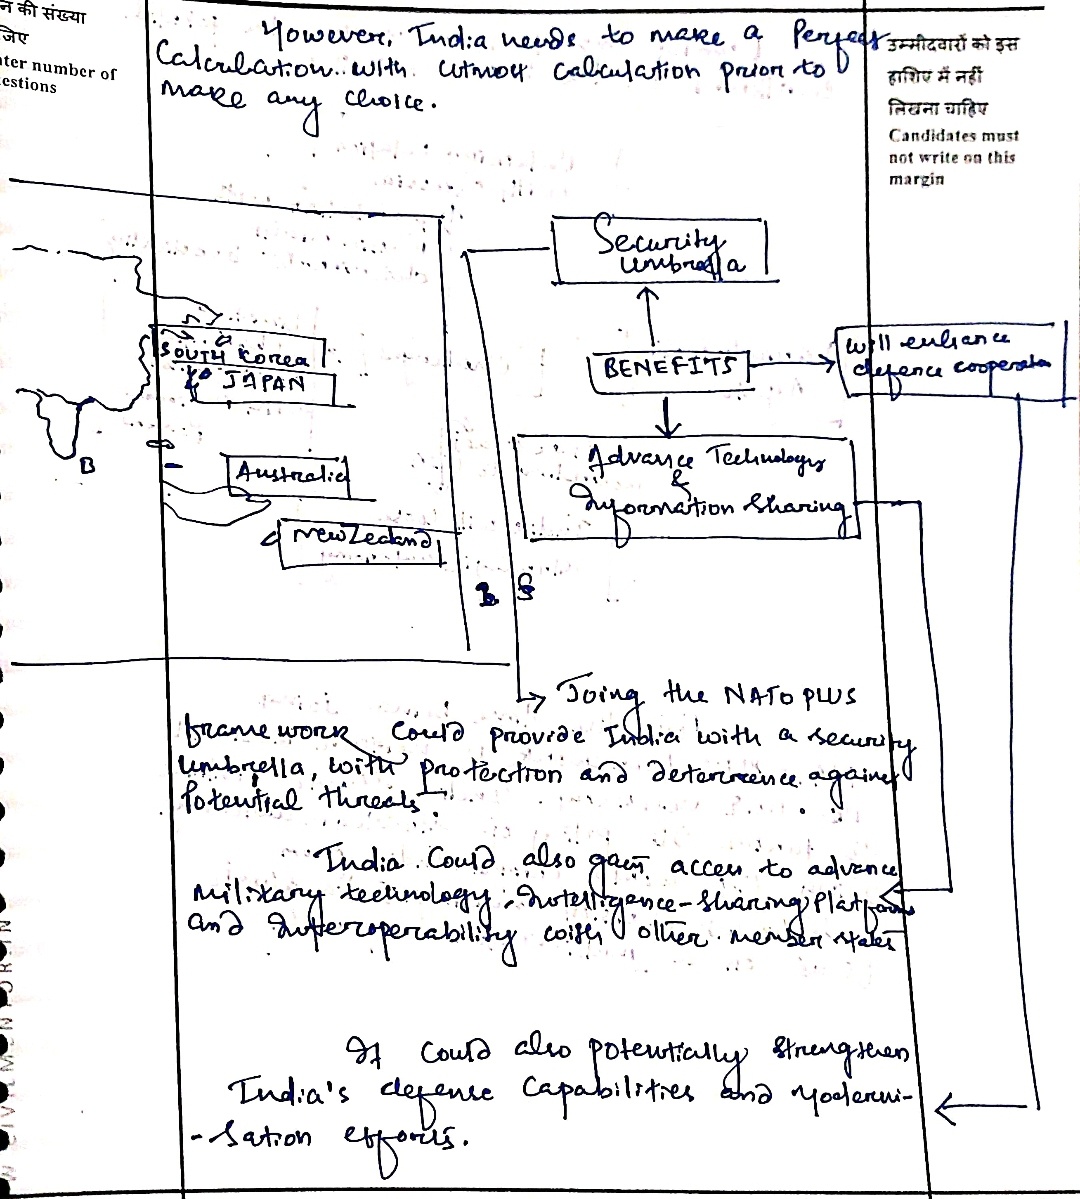 न की संख्या
जिए
ter number of
estions
However, India needs to make a Perfect
Calculation with utmost calculation prior to
make any choice.
उम्मीदवारों को इस
हाशिए में नहीं
लिखना चाहिए
Candidates must
not write on this
margin
Security
umbrella
BENEFITS
will enhance
defence cooperation
Advance Technology
&
Information Sharing
SOUTH Korea
JAPAN
Australia
New Zealand
B
Joing the NATO PLUS
framework could provide India with a security
umbrella, with protection and deterrence against
Potential threats.
India could also gain access to advance
military technology, Intelligence-sharing Platforms
and Interoperability with other member states
It could also potentially strengthen
India's defense capabilities and Moderni-
-sation efforts.